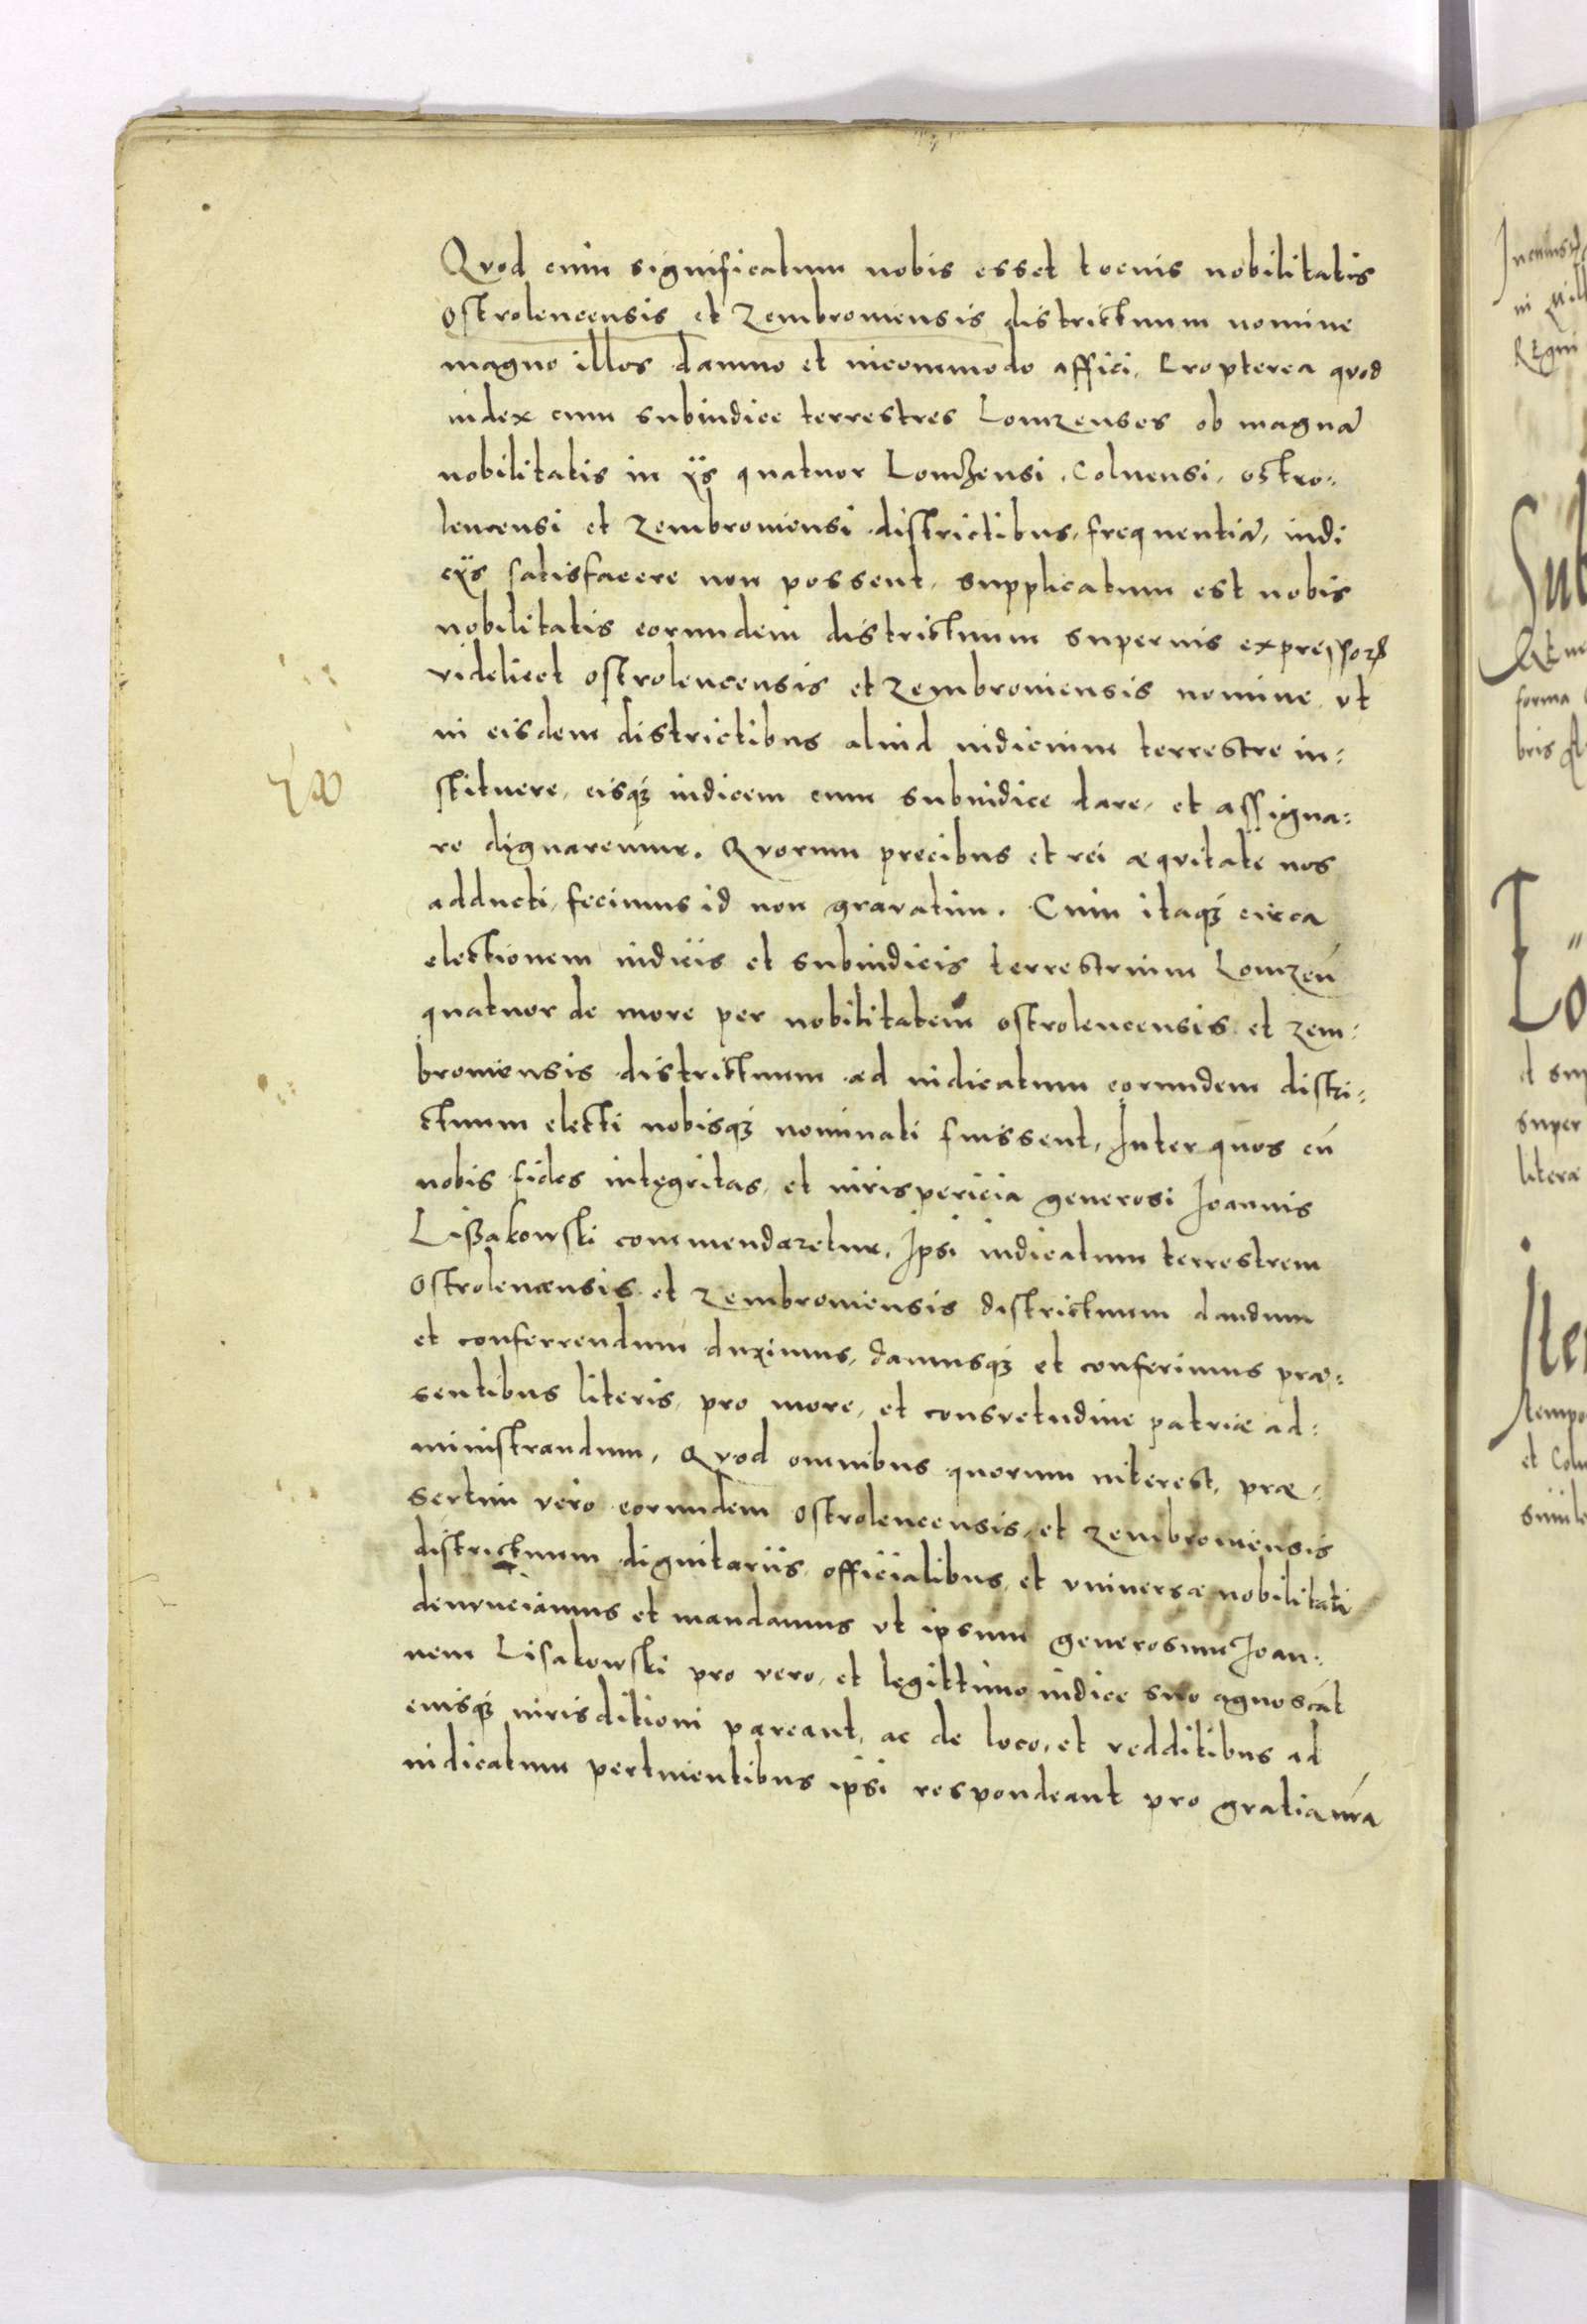 Qvod cum significatum nobis esset tocius nobilitatis
Ostrolencensis et Zembroviensis districtuum nomine
magno illos damno et incommodo affici, Propterea qvod
iudex cum subiudice terrestres Lomzenses ob magnã
nobilitatis in ijs quatuor Lomzensi, Colnensi, ostro:
lencensi et Zembroviensi districtibus, frequentiã, iudi
cijs satisfacere non possent, supplicatum est nobis
nobilitatis eorundem districtuum superius expressorũ
videlicet ostrolencensis et Zembroviensis nomine, vt
in eisdem districtibus aliud iudicium terrestre in:
stituere, eisq; iudicem cum subiudice dare, et assigna:
re dignaremur. Qvorum precibus et rei æqvitate nos
adducti, fecimus id non gravatim. Cum itaq; circa
electionem iudicis et subiudicis terrestrium Lomzeñ
quatuor de more per nobilitatem ostrolencensis et zem:
broviensis districtuum ad iudicatum eorundem distri:
ctuum electi nobisq; nominati fuissent, Inter quos cũ
nobis fides integritas, et iurispericia generosi Joannis
Lißakowski commendaretur, Ipsi iudicatum terrestrem
Ostrolencensis et Zembroviensis districtuum dandum
et conferrendum duximus, damusq; et conferimus præ:
sentibus literis, pro more, et consvetudine patriæ ad:
ministrandum, Qvod omnibus quorum interest, præ:
sertim vero eorundem Ostrolencensis, et Zembroviensis
districtuum dignitariis officialibus, et vniversæ nobilitati
denunciamus et mandamus vt ipsum generosum Joan:
nem Lisakowski pro vero, et legittimo iudice suo agnoscãt
eiusq; iurisditioni pareant, ac de loco, et redditibus ad
iudicatum pertinentibus ipsi respondeant pro gratia nr̃a